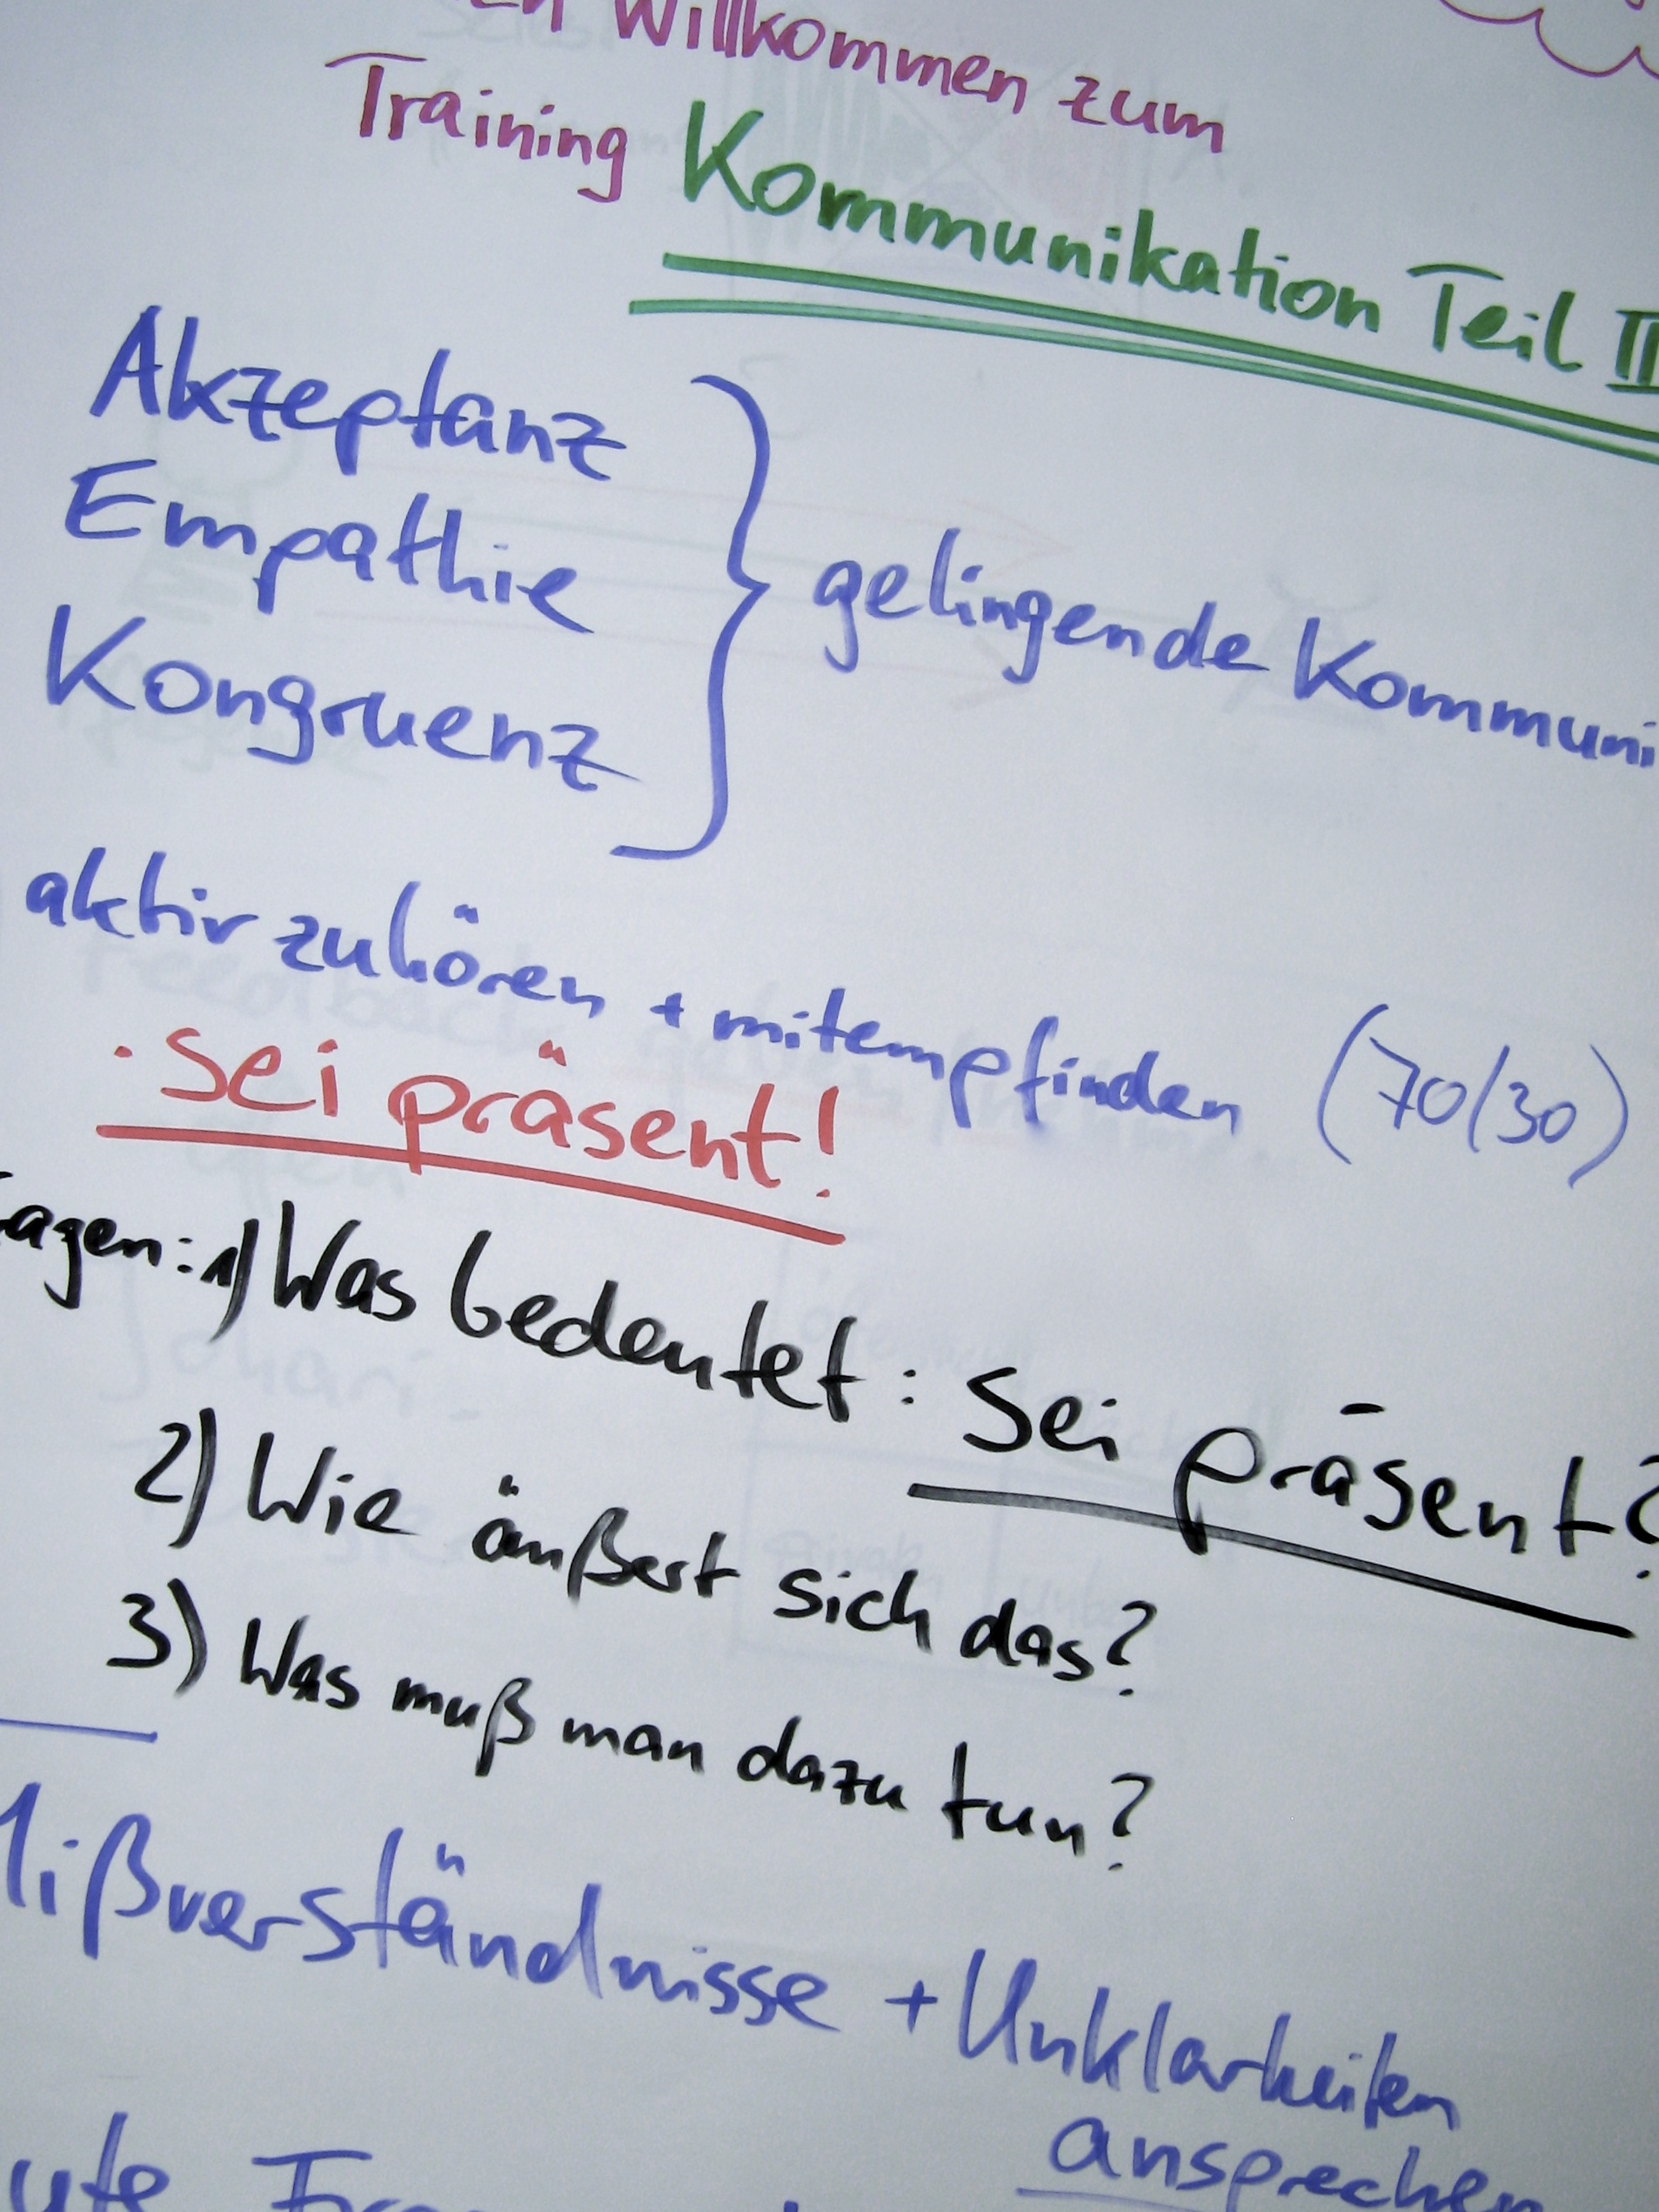 Willkommen zum
Training Kommunikation Teil II
Akzeptanz
Empathie
Kongruenz
gelingende Kommuni
aktiv zuhören + mitempfinden (70/30)
· Sei präsent!
agen: 1) Was bedeutet: Sei präsent?
2) Wie äußert sich das?
3) Was muß man dazu tun?
ißverständnisse + Unklarheiten
ansprechen
ute